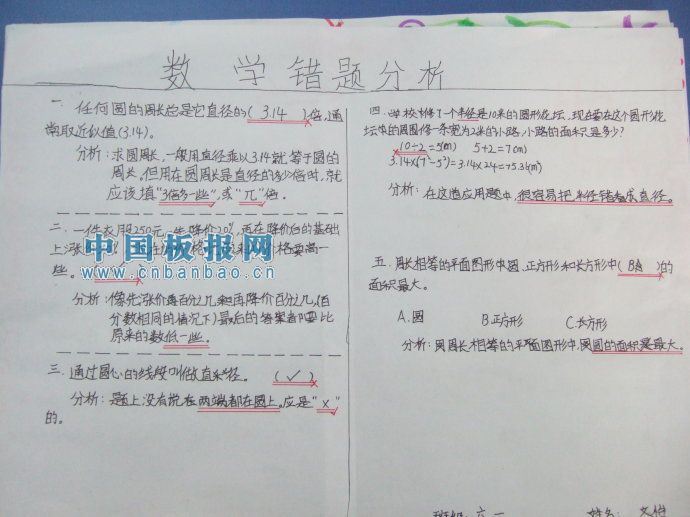 数学错题分析
一. 任何圆的周长总是它直径的( 3.14 )倍,通
常取近似值(3.14)。
分析:求圆周长,一般用直径乘以3.14就等于圆的
周长。但用在圆周长是直径的多少倍时,就
应该填"3倍多一些",或"π"倍。
二. 一件衣服250元,先降价20%,再在降价后的基础
上涨
些。
分析:像先涨价百分之几和再降价百分之几(百
分数相同的情况下)最后的答案都要比
原来的数低一些。
三. 通过圆心的线段叫做直径。 (✓)
分析:题上没有说在两端都在圆上。应是"×"
的。
四. 学校修了一个半径是10米的圆形花坛,现在要在这个圆形花
坛的周围修一条宽为2米的小路,小路的面积是多少?
10÷2=5(m) 5+2=7(m)
3.14×(7²-5²)=3.14×24=75.3(m)
分析:在这道应用题中,很容易把半径错看成直径。
五. 周长相等的平面图形中圆、正方形和长方形中( B )的
面积最大。
A.圆 B.正方形 C.长方形
分析:周长相等的平面图形中,圆的面积是最大。
中国板报网
www.cnbanbao.cn
班级:六一 姓名: